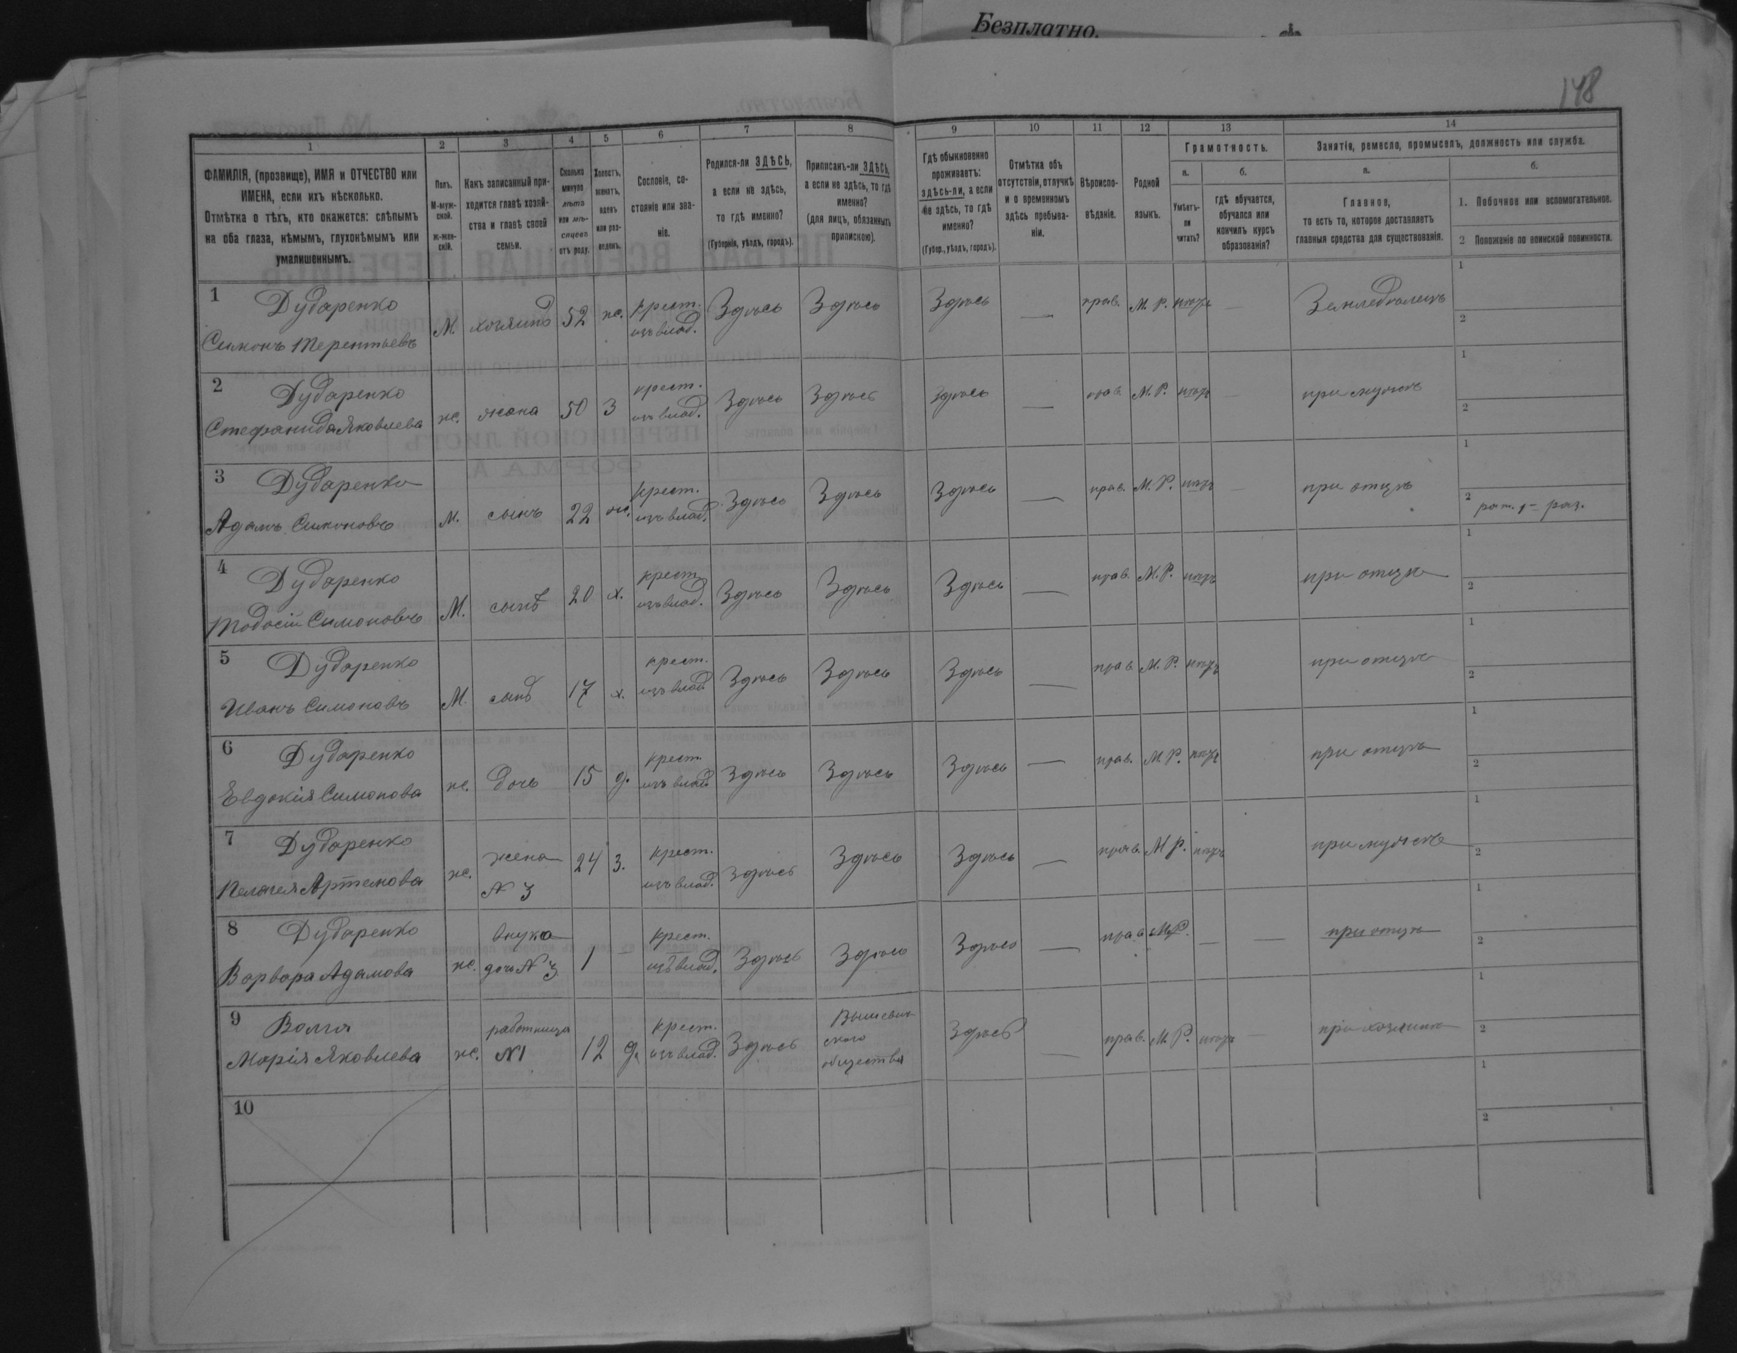 Безплатно.
148
1 2 3 4 5 6 7 8 9 10 11 12 13 14
ФАМИЛІЯ, (прозвище), ИМЯ и ОТЧЕСТВО или
ИМЕНА, если ихъ нѣсколько.
Отмѣтка о тѣхъ, кто окажется: слѣпымъ
на оба глаза, нѣмымъ, глухонѣмымъ или
умалишеннымъ.
Полъ.
М-муж-
ской.
Ж-жен-
скій.
Какъ записанный при-
ходится главѣ хозяй-
ства и главѣ своей
семьи.
Сколько
минуло
лѣтъ
или мѣ-
сяцевъ
отъ роду.
Холостъ,
женатъ,
вдовъ
или раз-
веденъ.
Сословіе, со-
стояніе или зва-
ніе.
Родился-ли ЗДѢСЬ,
а если не здѣсь,
то гдѣ именно?
(Губернія, уѣздъ, городъ).
Приписанъ-ли ЗДѢСЬ,
а если не здѣсь, то гдѣ
именно?
(для лицъ, обязанныхъ
припискою).
Гдѣ обыкновенно
проживаетъ:
здѣсь-ли, а если
не здѣсь, то гдѣ
именно?
(Губер., уѣздъ, городъ).
Отмѣтка объ
отсутствіи, отлучкѣ
и о временномъ
здѣсь пребыва-
ніи.
Вѣроиспо-
вѣданіе.
Родной
языкъ.
Грамотность.
а.
Умѣетъ-
ли
читать?
б.
гдѣ обучается,
обучался или
кончилъ курсъ
образованія?
Занятіе, ремесло, промыселъ, должность или служба.
а.
Главное,
то есть то, которое доставляетъ
главныя средства для существованія.
б.
1. Побочное или вспомогательное.
2 Положеніе по воинской повинности.
1 Дударенко
Симонъ Терентьевъ М. хозяинъ 52 ж. крест. изъ влад. Здѣсь Здѣсь Здѣсь — прав. М. Р. нѣтъ — Земледѣлецъ 1 2
2 Дударенко
Стефанида Яковлева ж. жена 50 З крест. изъ влад. Здѣсь Здѣсь Здѣсь — прав. М. Р. нѣтъ — при мужѣ 1 2
3 Дударенко
Адамъ Симоновъ М. сынъ 22 ж. крест. изъ влад. Здѣсь Здѣсь Здѣсь — прав. М. Р. нѣтъ — при отцѣ 1 2 рат. 1 раз.
4 Дударенко
Тодосій Симоновъ М. сынъ 20 х. крест. изъ влад. Здѣсь Здѣсь Здѣсь — прав. М. Р. нѣтъ при отцѣ 1 2
5 Дударенко
Иванъ Симоновъ М. сынъ 17 х. крест. изъ влад. Здѣсь Здѣсь Здѣсь — прав. М. Р. нѣтъ при отцѣ 1 2
6 Дударенко
Евдокія Симонова ж. дочь 15 д. крест. изъ влад. Здѣсь Здѣсь Здѣсь — прав. М. Р. нѣтъ при отцѣ 1 2
7 Дударенко
Пелагея Артемова ж. жена N 3 24 З. крест. изъ влад. Здѣсь Здѣсь Здѣсь — прав. М. Р. нѣтъ при мужѣ 1 2
8 Дударенко
Варвара Адамова ж. внука дочь N 3 1 — крест. изъ влад. Здѣсь Здѣсь Здѣсь — прав. М. Р. — — при отцѣ 1 2
9
Марія Яковлева ж. работница N1 12 д. крест. изъ влад. Здѣсь общества Здѣсь — прав. М. Р. нѣтъ — при хозяинѣ 1 2
10 1 2